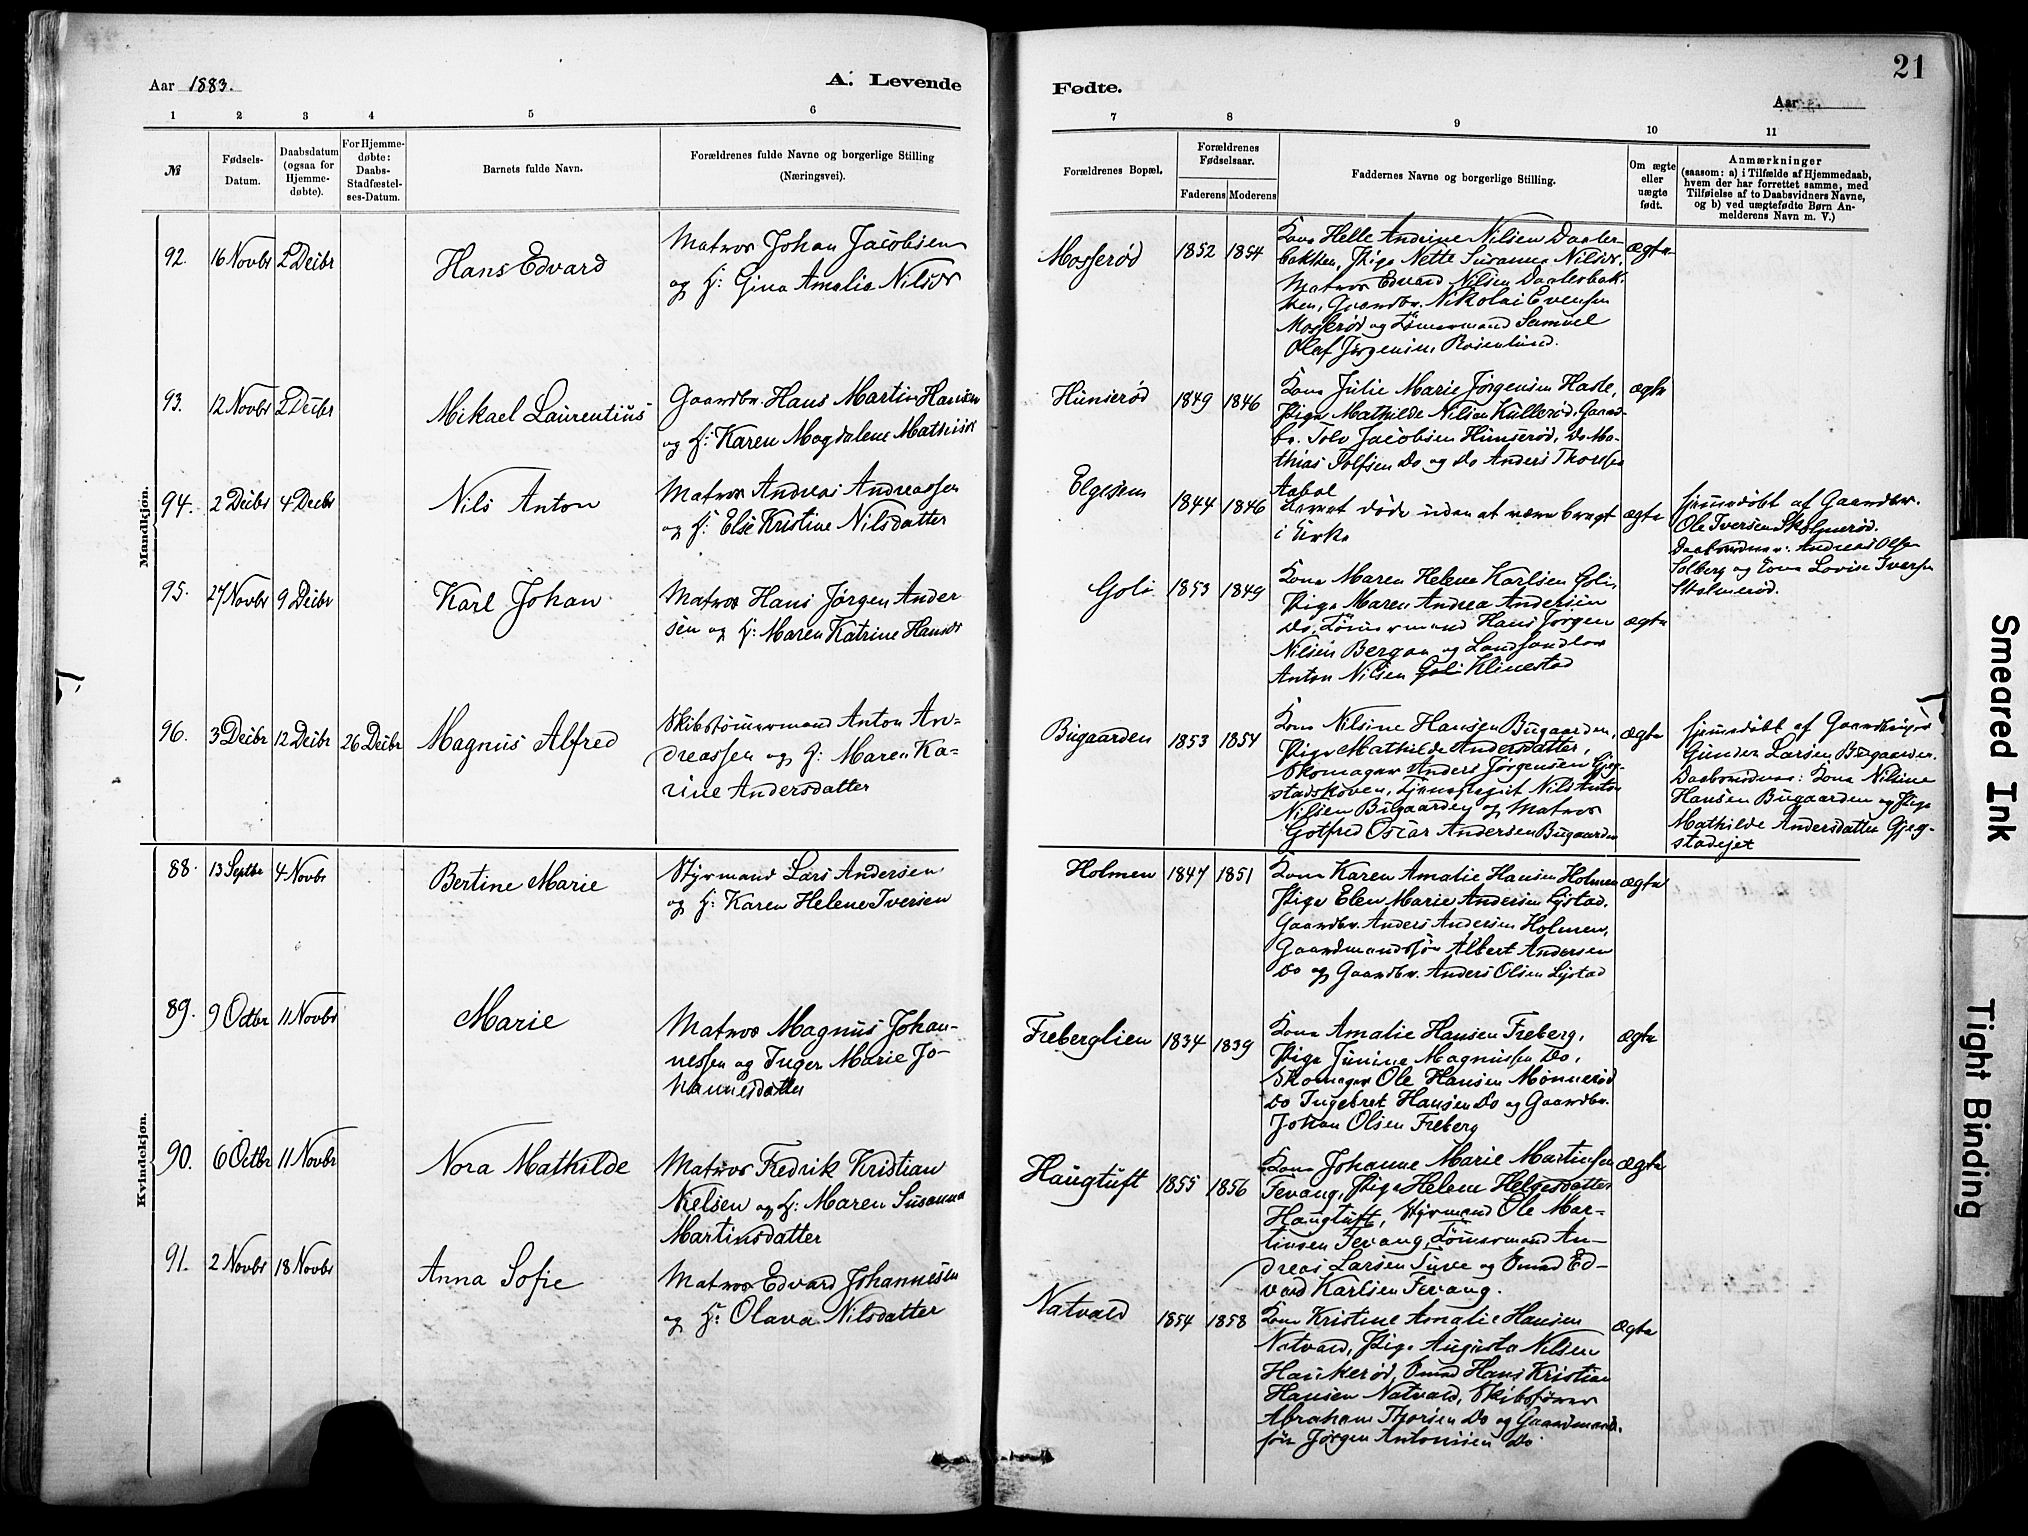 21
Aar 1883.
A. Levende
Fødte.
Aar
1 2 3 4 5 6 7 8 9 10 11
№
Fødsels-Datum.
Daabsdatum (ogsaa for Hjemme-døbte).
For Hjemme-døbte: Daabs-Stadfæstel-ses-Datum.
Barnets fulde Navn.
Forældrenes fulde Navne og borgerlige Stilling (Næringsvei).
Forældrenes Bopæl.
Forældrenes Fødselsaar.
Faderens Moderens
Faddernes Navne og borgerlige Stilling.
Om ægte eller uægte født.
Anmærkninger
(saasom: a) i Tilfælde af Hjemmedaab,
hvem der har forrettet samme, med
Tilføielse af to Daabsvidners Navne,
og b) ved uægtefødte Børn An-
melderens Navn m. V.)
Mandkjøn.
92. 16 Novbr 2 Decbr Hans Edvard
Matros Johan Jacobsen
og H: Gina Amalie Nilsdr
Mosserød 1852 1854
Kone Helle Andrine Nilsen Daaler-
bakken, Pige Nette Susanne Nilsdr.
Matros Edvard Nilsen Daalerbak-
ken, Gaardbr. Nikolai Evensen
Mosserød og Tømermand Samuel
Olaf Jørgensen Rosenlund.
ægte
93. 12 Novbr 2 Decbr Mikael Laurentius
Gaardbr. Hans Martin Hansen
og H: Karen Magdalene Mathisdr
Hunserød 1849 1846
Kone Julie Marie Jørgensen Hasle,
Pige Mathilde Nilsen Kullerød, Gaard-
br. Tolv Jacobsen Hunserød, Do Ma-
thias Tolfsen Do og Do Anders Thoresen
Aabol
ægte
94. 2 Decbr 4 Decbr Nils Anton
Matros Andreas Andreassen
og H: Else Kristine Nilsdatter
Elgesem 1844 1846
Barnet døde uden at være bragt
i Kirke
ægte
Hjemmedøbt af Gaardbr.
Ole Iversen Skolmerød.
Daabsvidner: Andreas Olsen
Solberg og Kone Lovise Iversen
Skolmerød.
95. 27 Novbr 9 Decbr Karl Johan
Matros Hans Jørgen Ander
sen og H: Maren Katrine Hansdr
Goli 1853 1849
Kone Maren Helene Karlsen Goli,
Pige Maren Andrea Andersen
Do, Tømermand Hans Jørgen
Nilsen Bergan og Landhandler
Anton Nilsen Goli Klinestad
ægte
96. 3 Decbr 12 Decbr 26 Decbr Magnus Alfred
Skibstømermand Anton An-
dreassen og H: Maren Ka-
rine Andersdatter
Bugaarden 1853 1854
Kone Nilsine Hansen Bugaarden,
Pige Mathilde Andersdatter,
Skomager Anders Jørgensen Gjeg-
stadskoven, Nils Anton
Nilsen Bugaarden og Matros
Gotfred Oscar Andersen Bugaarden
ægte
Hjemmedøbt af Gaardbruger
Gunder Larsen Bugaarden.
Daabsvidner: Kone Nilsine
Hansen Bugaarden og Pige
Mathilde Andersdatter Gjeg-
stadejet
Kvindekjøn.
88. 13 Septbr 4 Novbr Bertine Marie
Styrmand Lars Andersen
og H: Karen Helene Iversen
Holmen 1847 1851
Kone Karen Amalie Hansen Holmen
Pige Elen Marie Andersen Lystad.
Gaardbr. Anders Andersen Holmen,
Gaardmandssøn Albert Andersen
Do og Gaardbr. Anders Olsen Lystad
ægte
89. 9 Octbr 11 Novbr Marie
Matros Magnus Johan-
nessen og Inger Marie Jo-
hannesdatter
Freberglien 1834 1839
Kone Amalie Hansen Freberg,
Pige Junine Magnussen Do,
Skomager Ole Hansen Mønnerød
Do Ingebret Hansen Do og Gaardbr.
Johan Olsen Freberg
ægte
90. 6 Octbr 11 Novbr Nora Mathilde
Matros Fredrik Kristian
Nielsen og H: Maren Susanna
Martinsdatter
Haugtuft 1855 1856
Kone Johanne Marie Martinsen
Fevang, Pige Helene Helgesdatter
Haugtuft, Styrmand Ole Mar-
tinsen Fevang, Tømermand An-
dreas Larsen Tuve og Ømad Ed-
vard Karlsen Fevang.
ægte
91. 2 Novbr 18 Novbr Anna Sofie
Matros Edvard Johannesen
og H: Olava Nilsdatter
Natvald 1854 1858
Kone Kristine Amalie Hansen
Natvald, Pige Augusta Nilsen
Haukerød, Ømad Hans Kristian
Hansen Natvald, Skibsfører
Abraham Thorsen Do og Gaardmands-
søn Jørgen Antonisen Do
Ægte
Smeared Ink
Tight Binding